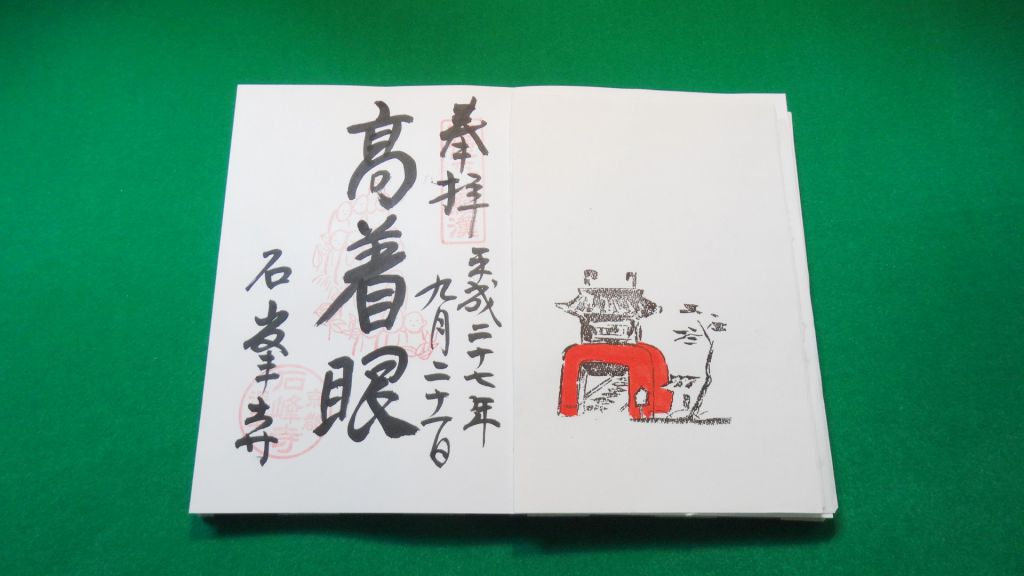 奉拝
平成二十七年
九月二十一日
高着眼
石峯寺
石峰寺